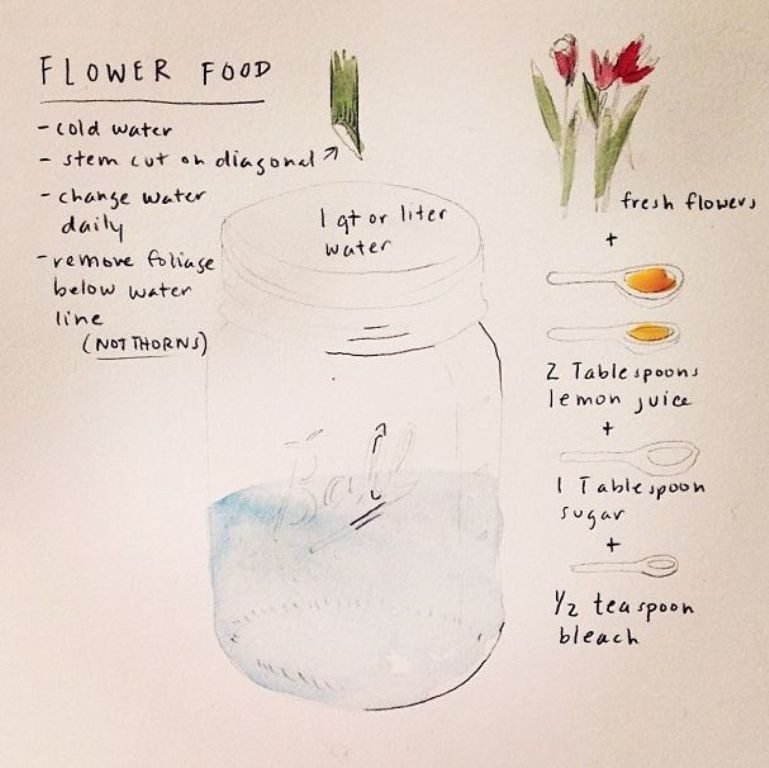 FLOWER FOOD
- cold water
- stem cut on diagonal
- change water
daily
- remove foliage
below water
line
(NOT THORNS)
1 qt or liter
water
Ball
fresh flowers
+
2 Tablespoons
lemon juice
+
1 Tablespoon
sugar
+
1/2 teaspoon
bleach